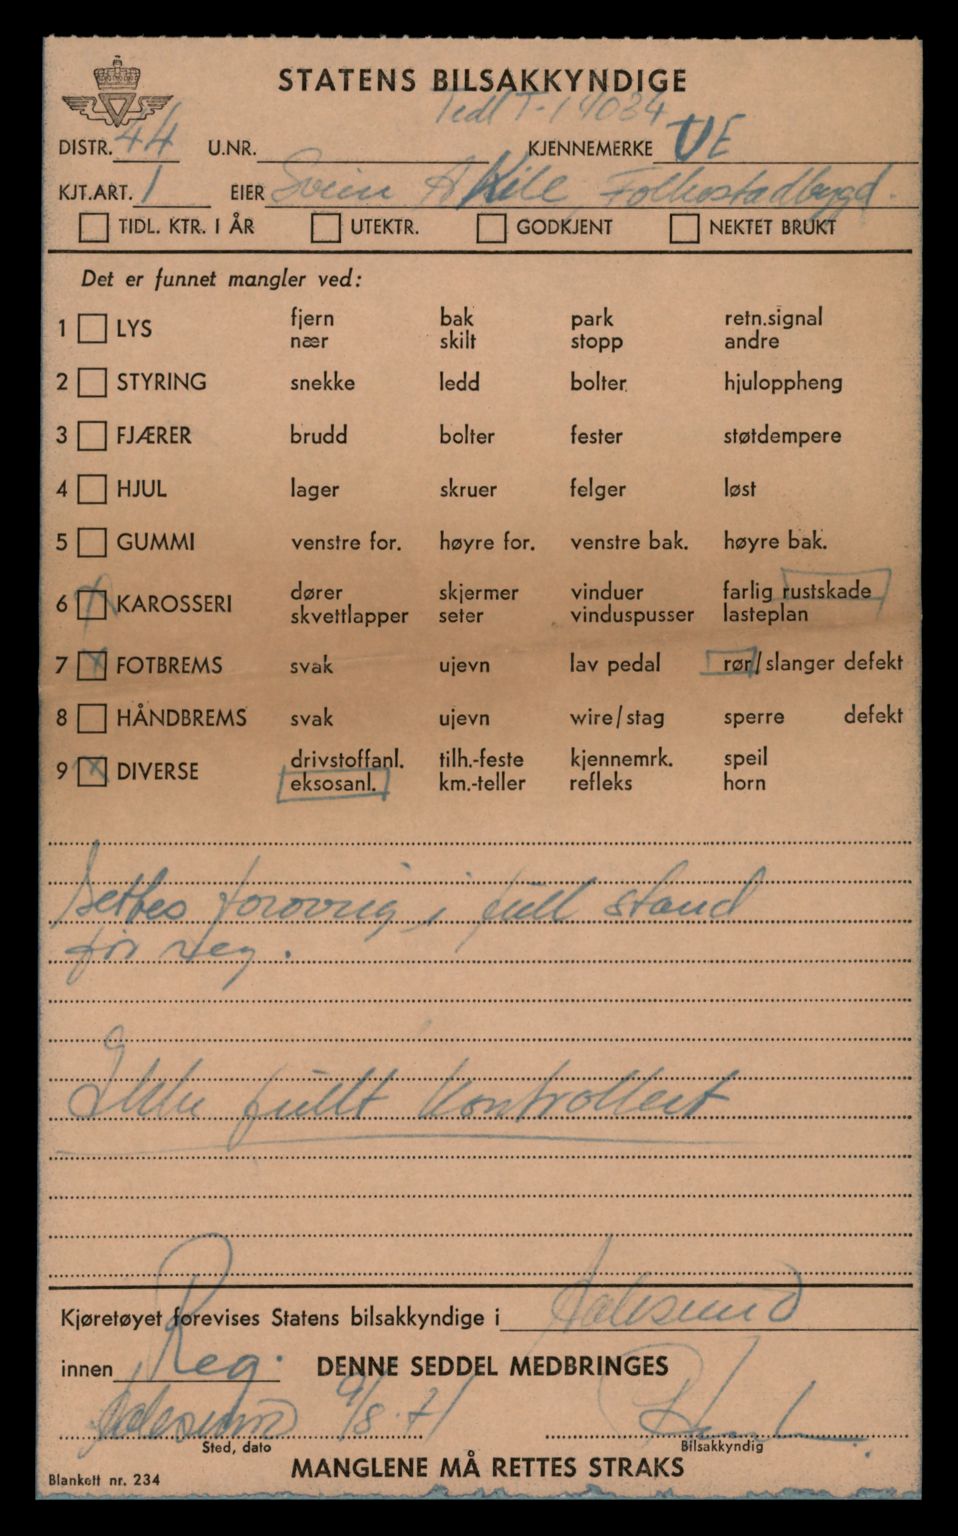 STATENS BILSAKKYNDIGE
Tidl T-14034
DISTR. 44 U.NR. KJENNEMERKE UE
KJT.ART. 1 EIER Svein A Kile Folkestadbygd.
TIDL. KTR. I ÅR UTEKTR. GODKJENT NEKTET BRUKT
Det er funnet mangler ved:
1 LYS fjern bak park retn.signal
nær skilt stopp andre
2 STYRING snekke ledd bolter hjuloppheng
3 FJÆRER brudd bolter fester støtdempere
4 HJUL lager skruer felger løst
5 GUMMI venstre for. høyre for. venstre bak. høyre bak.
6 X KAROSSERI dører skjermer vinduer farlig rustskade
skvettlapper seter vinduspusser lasteplan
7 X FOTBREMS svak ujevn lav pedal rør/slanger defekt
8 HÅNDBREMS svak ujevn wire/stag sperre defekt
9 X DIVERSE drivstoffanl. tilh.-feste kjennemrk. speil
eksosanl. km.-teller refleks horn
Settes forøvrig i full stand
før reg.
Ikke fullt kontrollert
Kjøretøyet forevises Statens bilsakkyndige i Aalesund
innen Reg. DENNE SEDDEL MEDBRINGES
Aalesund 9/8-71
Sted, dato Bilsakkyndig
MANGLENE MÅ RETTES STRAKS
Blankett nr. 234